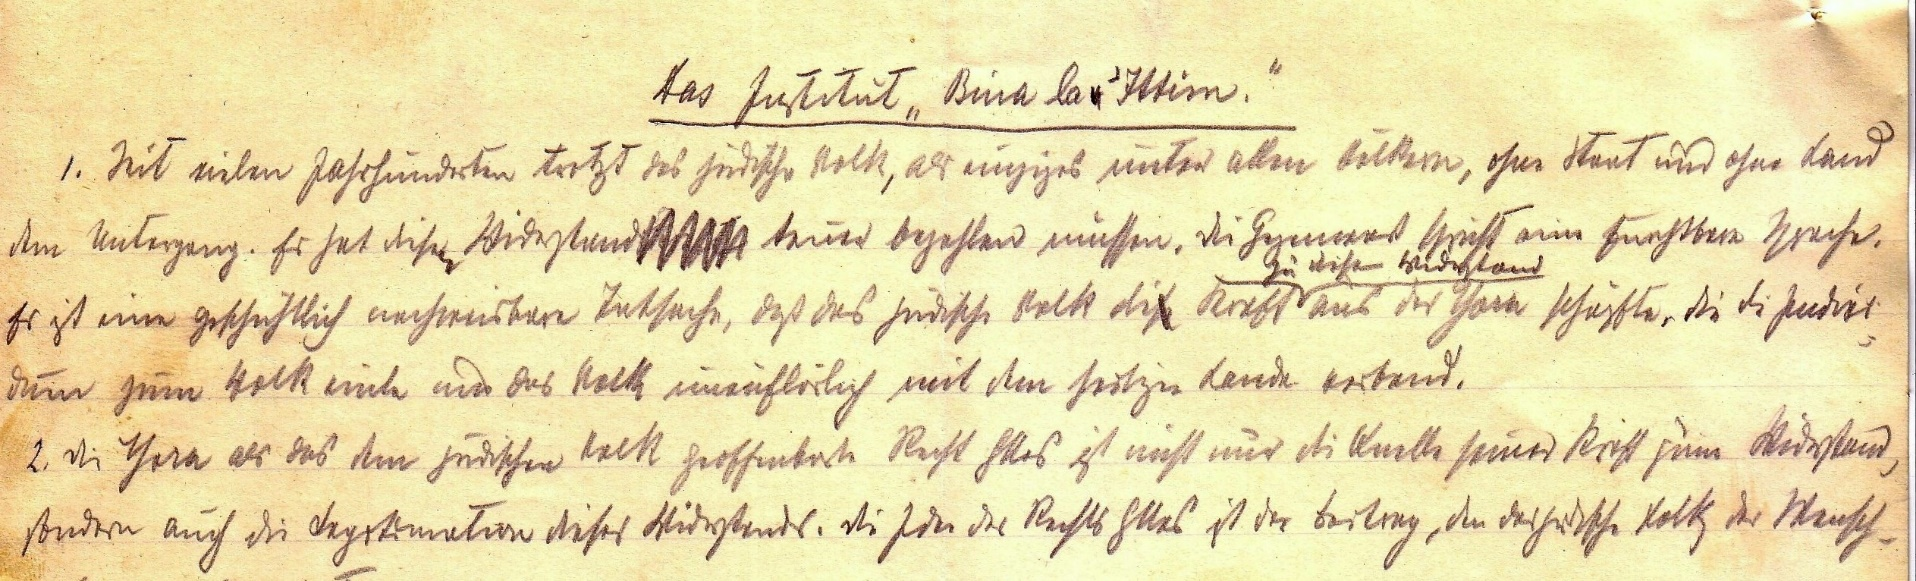 Das Institut „Bina la'Ittim."
1. Seit vielen Jahrhunderten trotzt das jüdische Volk, als einziges unter allen Völkern, ohne Staat und ohne Land
dem Untergang. Es hat diesen Widerstand teuer bezahlen müssen. Die Gegenwart spricht eine furchtbare Sprache.
zu diesem Widerstand
Es ist eine geschichtlich nachweisbare Tatsache, daß das jüdische Volk die Kraft aus der Thora schöpfte, die die Juden
zum Volk einte und das Volk unauflöslich mit dem heiligen Lande verband.
2. Die Thora als das dem jüdischen Volk geoffenbarte Recht Gttes ist nicht nur die Quelle seiner Kraft zum Widerstand,
sondern auch die Legitimation dieses Widerstands. Die Idee des Rechts Gttes ist der Beitrag, den das jüdische Volk der Mensch-